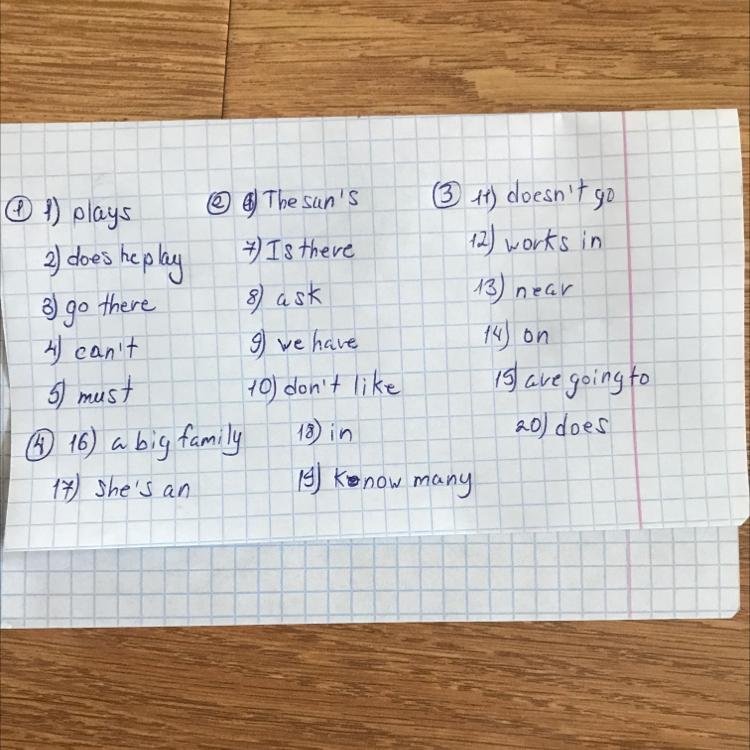 ① 1) plays
2) does he play
3) go there
4) can't
5) must
② 6) The sun's
7) Is there
8) ask
9) we have
10) don't like
③ 11) doesn't go
12) works in
13) near
14) on
15) are going to
20) does
④ 16) a big family
17) she's an
18) in
19) know many